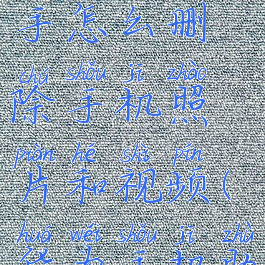 手怎么删
chú shǒu jī zhào
除手机照
piàn hé shì pín
片和视频(
huá wéi shǒu jī zhù